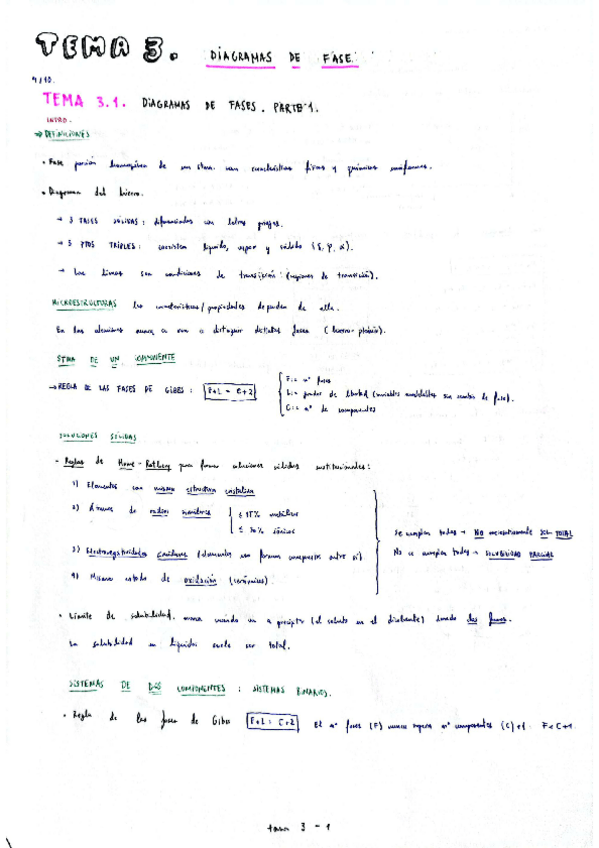 TEMA 3. DIAGRAMAS DE FASE.
4/10.
TEMA 3.1. DIAGRAMAS DE FASES. PARTE 1.
INTRO.
→ DEFINICIONES
• Fase porción homogénea de un stma. con características físicas y químicas uniformes.
• Diagrama del hierro.
→ 3 FASES SÓLIDAS: diferenciadas con letras griegas.
→ 3 PTOS TRIPLES: coexisten líquido, vapor y sólido
→ Las líneas son condiciones de transición (regiones de transición).
MICROESTRUCTURAS las características/propiedades dependen de ella.
En las aleaciones nunca se van a distinguir distintas fases
STMA DE UN COMPONENTE
→ REGLA DE LAS FASES DE GIBBS: F+L = C+2
F: nº fases
L: grados de libertad (variables modificables sin cambio de fase).
C: nº de componentes
SOLUCIONES SÓLIDAS
- Reglas de Hume-Rothery para formar soluciones sólidas sustitucionales:
1) Elementos con misma estructura cristalina
2) Átomos de radios similares
≤ 15% metálicos
≤ 30% iónicos
3) Electronegatividades similares (elementos no forman compuestos entre sí)
4) Mismo estado de oxidación (cerámicos)
Se cumplen todas → NO necesariamente SOL TOTAL
No se cumplen todas → SOLUBILIDAD PARCIAL
• Límite de solubilidad. (el soluto en el disolvente) dando dos fases.
La solubilidad en líquidos suele ser total.
SISTEMAS DE DOS COMPONENTES: SISTEMAS BINARIOS.
• Regla de las fases de Gibbs F+L = C+2 El nº fases (F) nunca supera nº componentes (C)+1:
tema 3 - 1